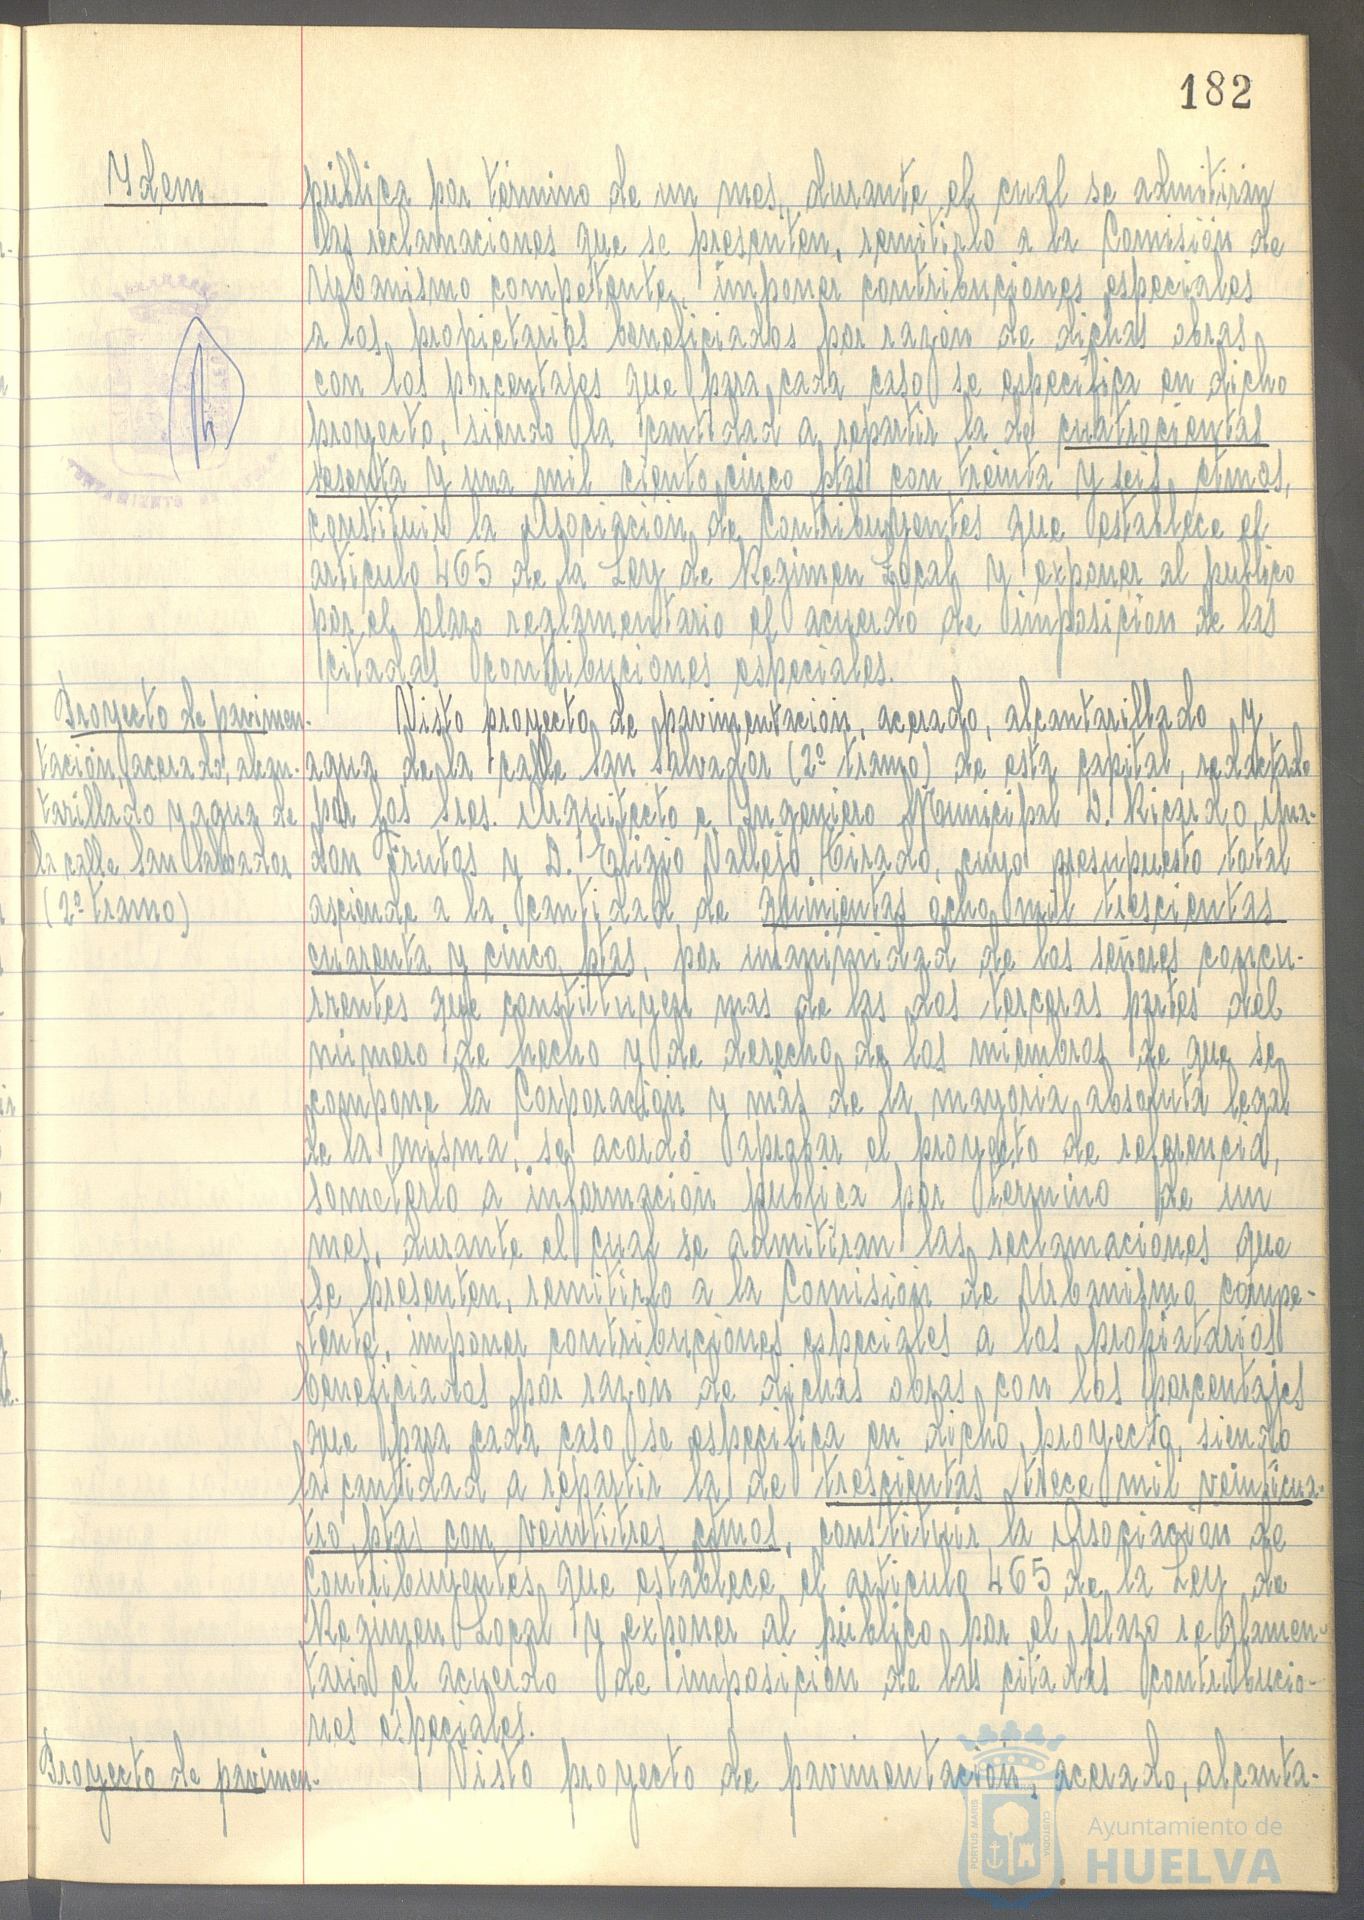 182
Ydem
pública por término de un mes, durante el cual se admitirán
las reclamaciones que se presenten, remitirlo a la Comisión de
Urbanismo competente, imponer contribuciones especiales
a los propietarios beneficiados por razón de dichas obras
con los porcentajes que para cada caso se especifica en dicho
proyecto, siendo la cantidad a repartir la de cuatrocientas
sesenta y una mil ciento cinco ptas con treinta y seis ctmos,
constituir la Asociación de Contribuyentes que establece el
articulo 465 de la Ley de Regimen Local y exponer al publico
por el plazo reglamentario el acuerdo de imposición de las
citadas contribuciones especiales.
Proyecto de pavimen-
tación, acerado, alcan-
tarillado y agua de
la calle San Salvador
(2º tramo)
Visto proyecto de pavimentación, acerado, alcantarillado y
agua de la calle San Salvador (2º tramo) de esta capital, redactado
por los Sres. Arquitecto e Ingeniero Municipal D. Ricardo Ana-
don Frutos y D. Eligio Vallejo Tirado, cuyo presupuesto total
asciende a la cantidad de quinientas ocho mil trescientas
cuarenta y cinco ptas, por unanimidad de los señores concu-
rrentes que constituyen mas de las dos terceras partes del
número de hecho y de derecho de los miembros de que se
compone la Corporación y más de la mayoria absoluta legal
de la misma, se acordó aprobar el proyecto de referencia,
someterlo a información publica por termino de un
mes, durante el cual se admitiran las reclamaciones que
se presenten, remitirlo a la Comisión de Urbanismo compe-
tente, imponer contribuciones especiales a los propietarios
beneficiados por razón de dichas obras con los porcentajes
que para cada caso se especifica en dicho proyecto, siendo
la cantidad a repartir la de trescientas trece mil veinticua-
tro ptas con veintitres ctmos, constituir la Asociación de
Contribuyentes que establece el articulo 465 de la Ley de
Regimen Local y exponer al público por el plazo reglamen-
tario el acuerdo de imposición de las citadas contribucio-
nes especiales.
Proyecto de pavimen-
Visto proyecto de pavimentación, acerado, alcanta-
PORTUS MARIS
CUSTODIA
Ayuntamiento de
HUELVA